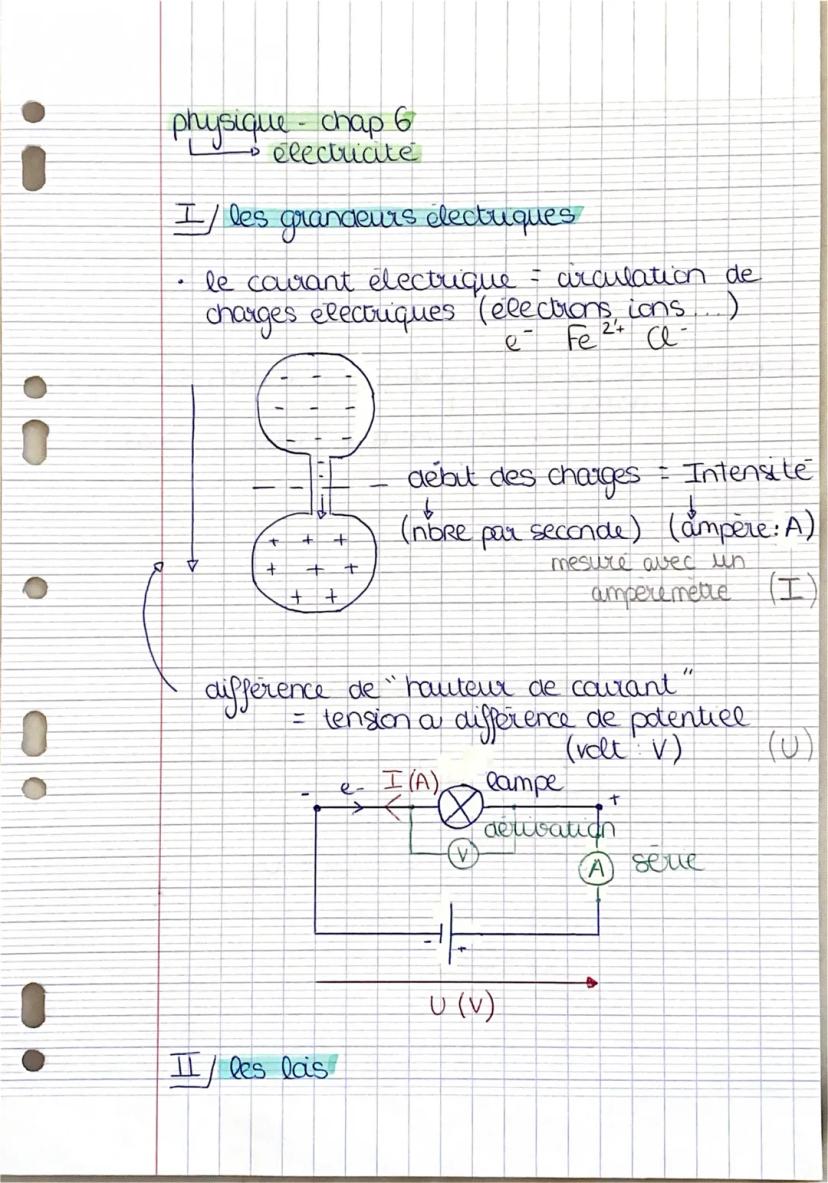 physique - chap 6
électricité
I/ les grandeurs électriques
• le courant électrique = circulation de
charges electriques (électrons, ions...)
e⁻ Fe²⁺ Cl⁻
débit des charges = Intensité
(nbre par seconde) (ampère: A)
mesuré avec un
ampèremètre (I)
différence de "hauteur de courant"
= tension a différence de potentiel
(volt : V) (U)
- e- I(A) lampe +
dérivation
V
A série
- +
U (V)
II/ les lois